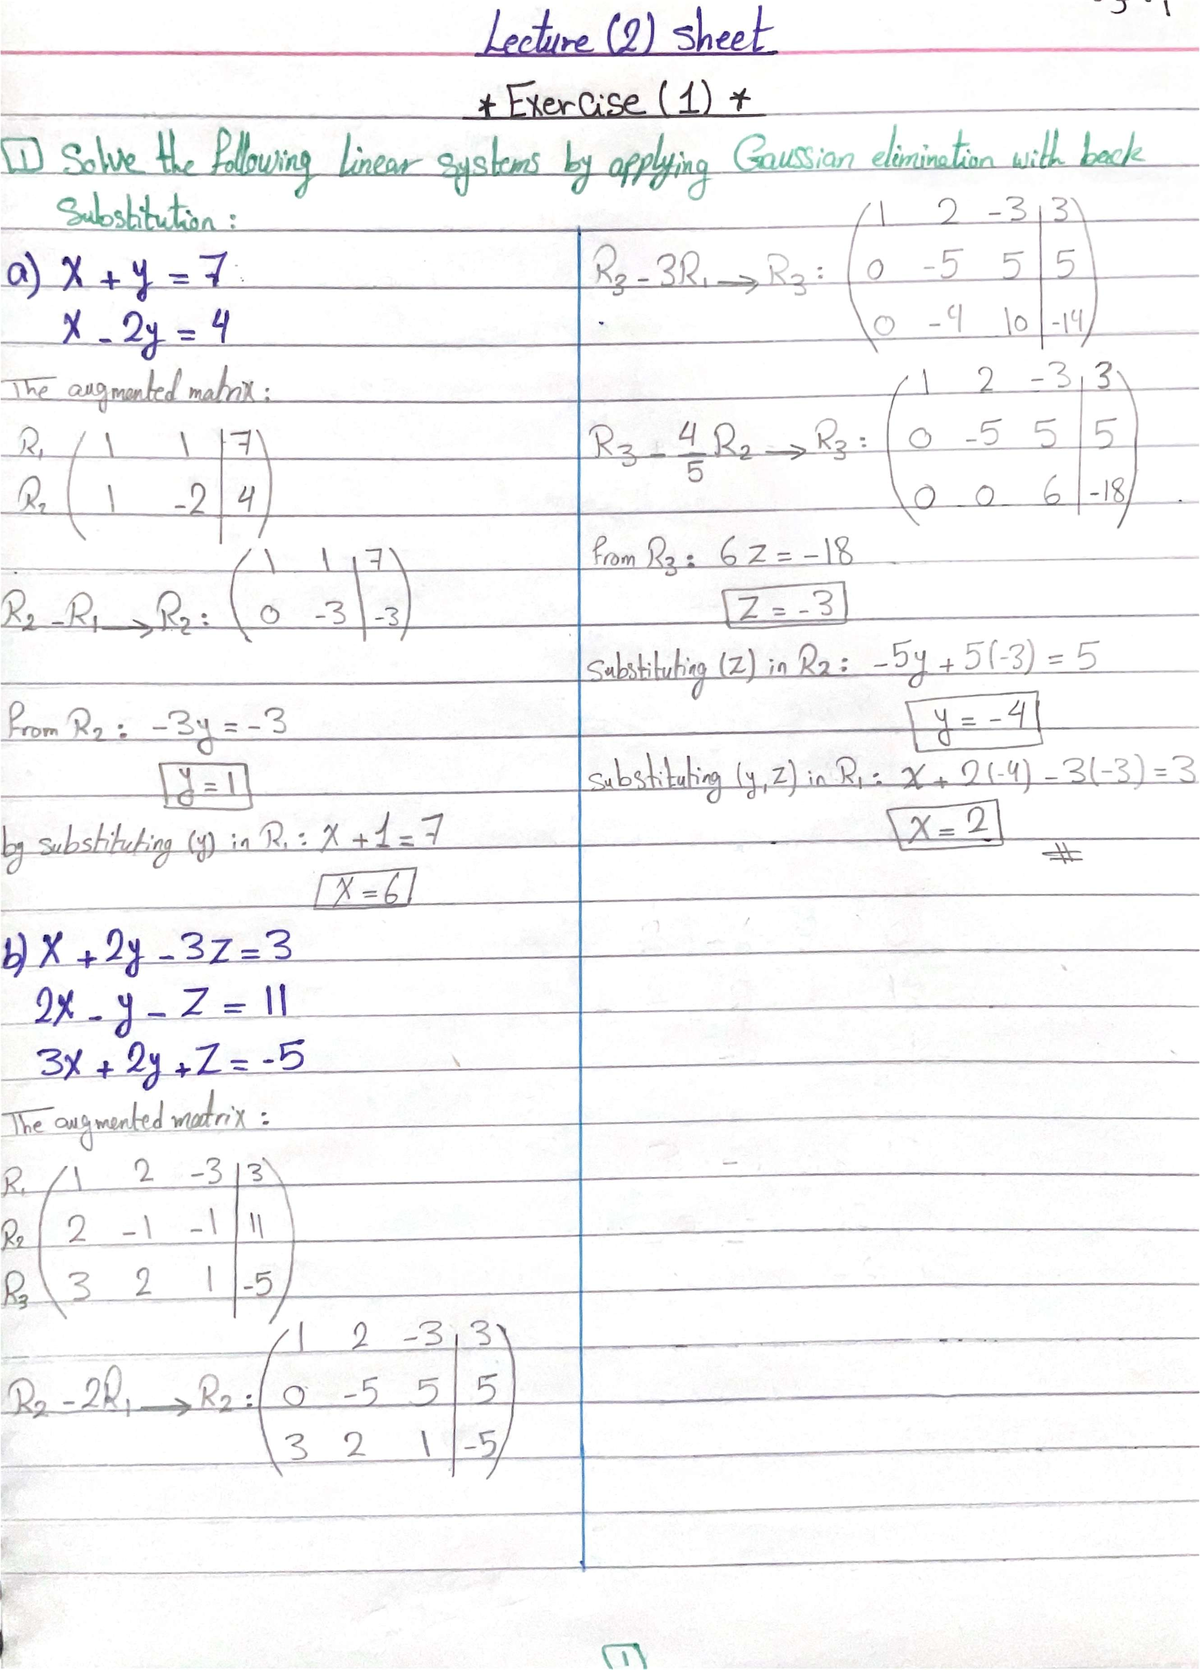 Lecture (2) sheet
* Exercise (1) *
1 Solve the following linear systems by applying Gaussian elimination with back
Substitution :
a) x + y = 7
x - 2y = 4
The augmented matrix :
R1 ( 1 1 | 7 )
R2 ( 1 -2 | 4 )
( 1 1 | 7 )
R2 - R1 → R2 : ( 0 -3 | -3 )
from R2 : -3y = -3
y = 1
by substituting (y) in R1 : x + 1 = 7
x = 6
b) x + 2y - 3z = 3
2x - y - z = 11
3x + 2y + z = -5
The augmented matrix :
R1 ( 1 2 -3 | 3 )
R2 ( 2 -1 -1 | 11 )
R3 ( 3 2 1 | -5 )
( 1 2 -3 | 3 )
R2 - 2R1 → R2 : ( 0 -5 5 | 5 )
( 3 2 1 | -5 )
( 1 2 -3 | 3 )
R3 - 3R1 → R3 : ( 0 -5 5 | 5 )
( 0 -4 10 | -14 )
( 1 2 -3 | 3 )
R3 - 4/5 R2 → R3 : ( 0 -5 5 | 5 )
( 0 0 6 | -18 )
from R3 : 6z = -18
z = -3
Substituting (z) in R2 : -5y + 5(-3) = 5
y = -4
Substituting (y, z) in R1 : x + 2(-4) - 3(-3) = 3
x = 2
#
1